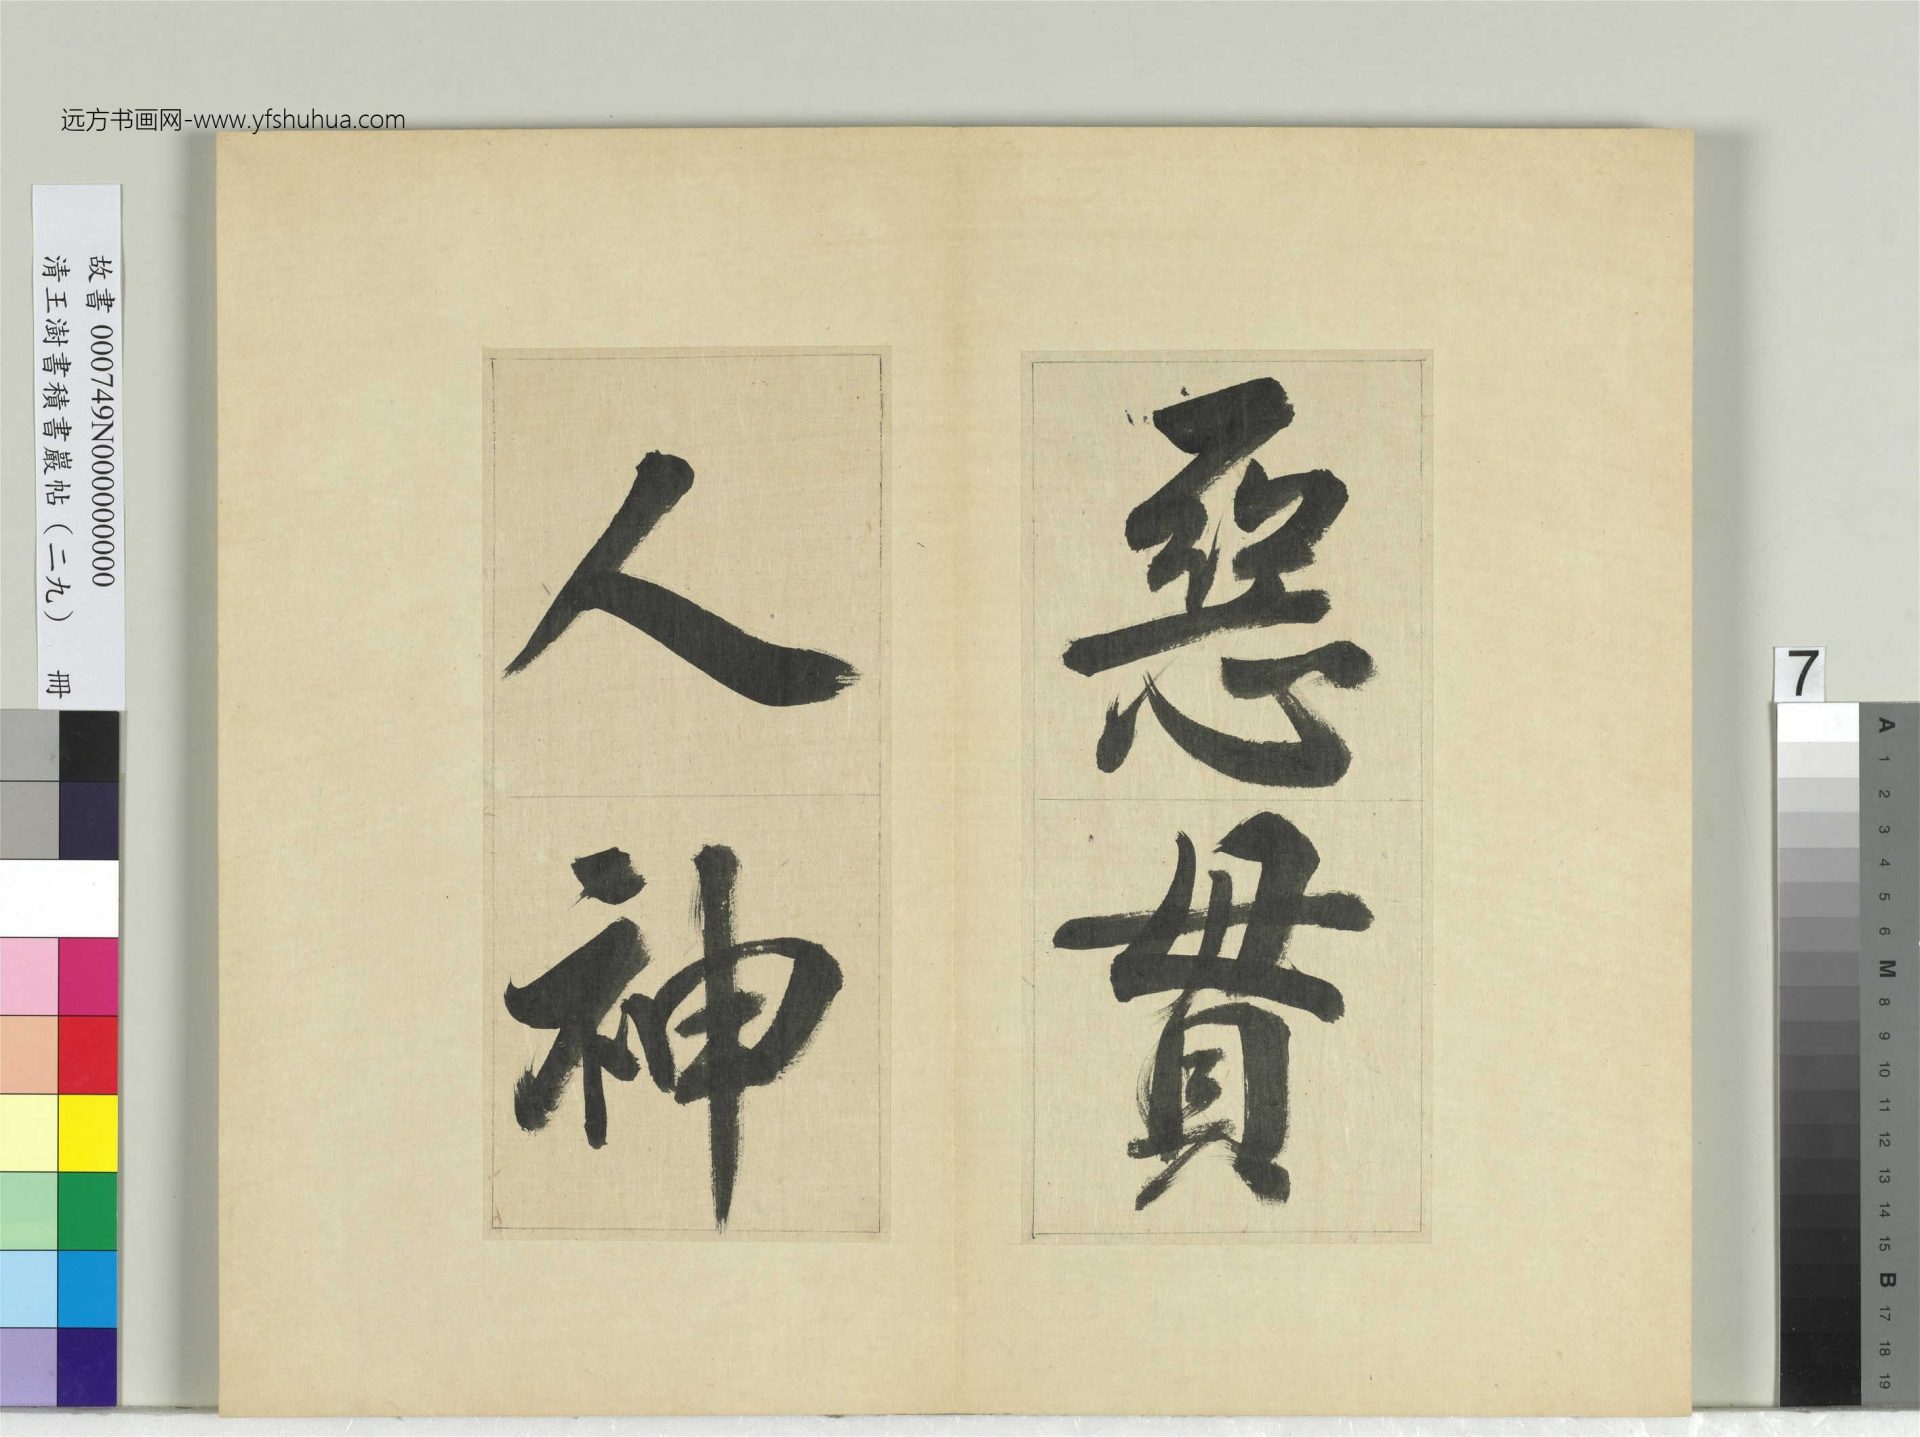 远方书画网-www.yfshuhua.com
惡貫
人神
故書 000749N000000000
清王澍書積書巖帖（二九） 冊
7
A 1 2 3 4 5 6 M 8 9 10 11 12 13 14 15 B 17 18 19